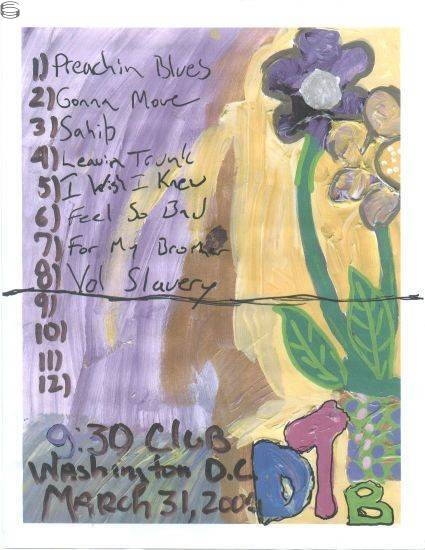 1) Preachin Blues
2) Gonna Move
3) Sahib
4) Leavin Trunk
5) I Wish I Knew
6) Feel So Bad
7) For My Brother
8) Vol Slavery
9)
10)
11)
12)
9:30 Club
Washington D.C.
March 31,
DTB